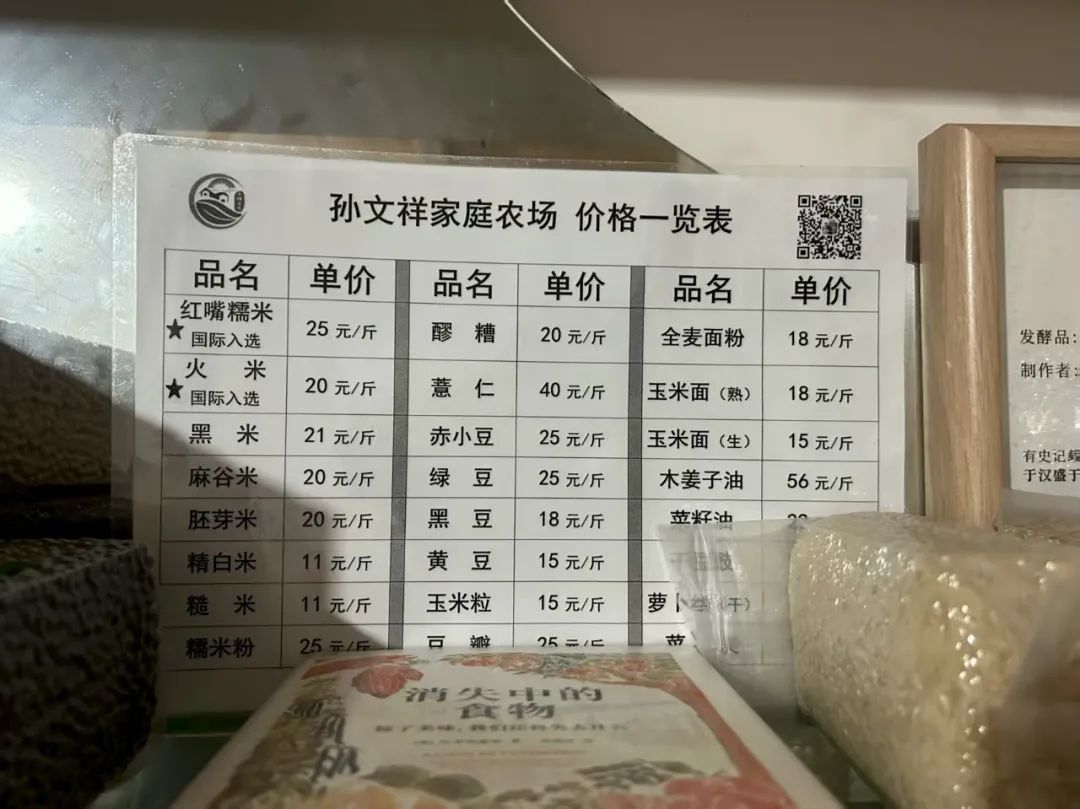 孙文祥家庭农场 价格一览表
品名 单价 品名 单价 品名 单价
红嘴糯米
★ 国际入选 25 元/斤 醪 糟 20 元/斤 全麦面粉 18 元/斤
火 米
★ 国际入选 20 元/斤 薏 仁 40 元/斤 玉米面（熟） 18 元/斤
黑 米 21 元/斤 赤小豆 25 元/斤 玉米面（生） 15 元/斤
麻谷米 20 元/斤 绿 豆 25 元/斤 木姜子油 56 元/斤
胚芽米 20 元/斤 黑 豆 18 元/斤 菜籽油
精白米 11 元/斤 黄 豆 15 元/斤
糙 米 11 元/斤 玉米粒 15 元/斤 萝卜 （干）
糯米粉 25 元/斤 豆 瓣 25 元/斤 菜
消失中的
食物
除了美味，我们还将失去什么
发酵品：
制作者：
有史记
于汉盛于